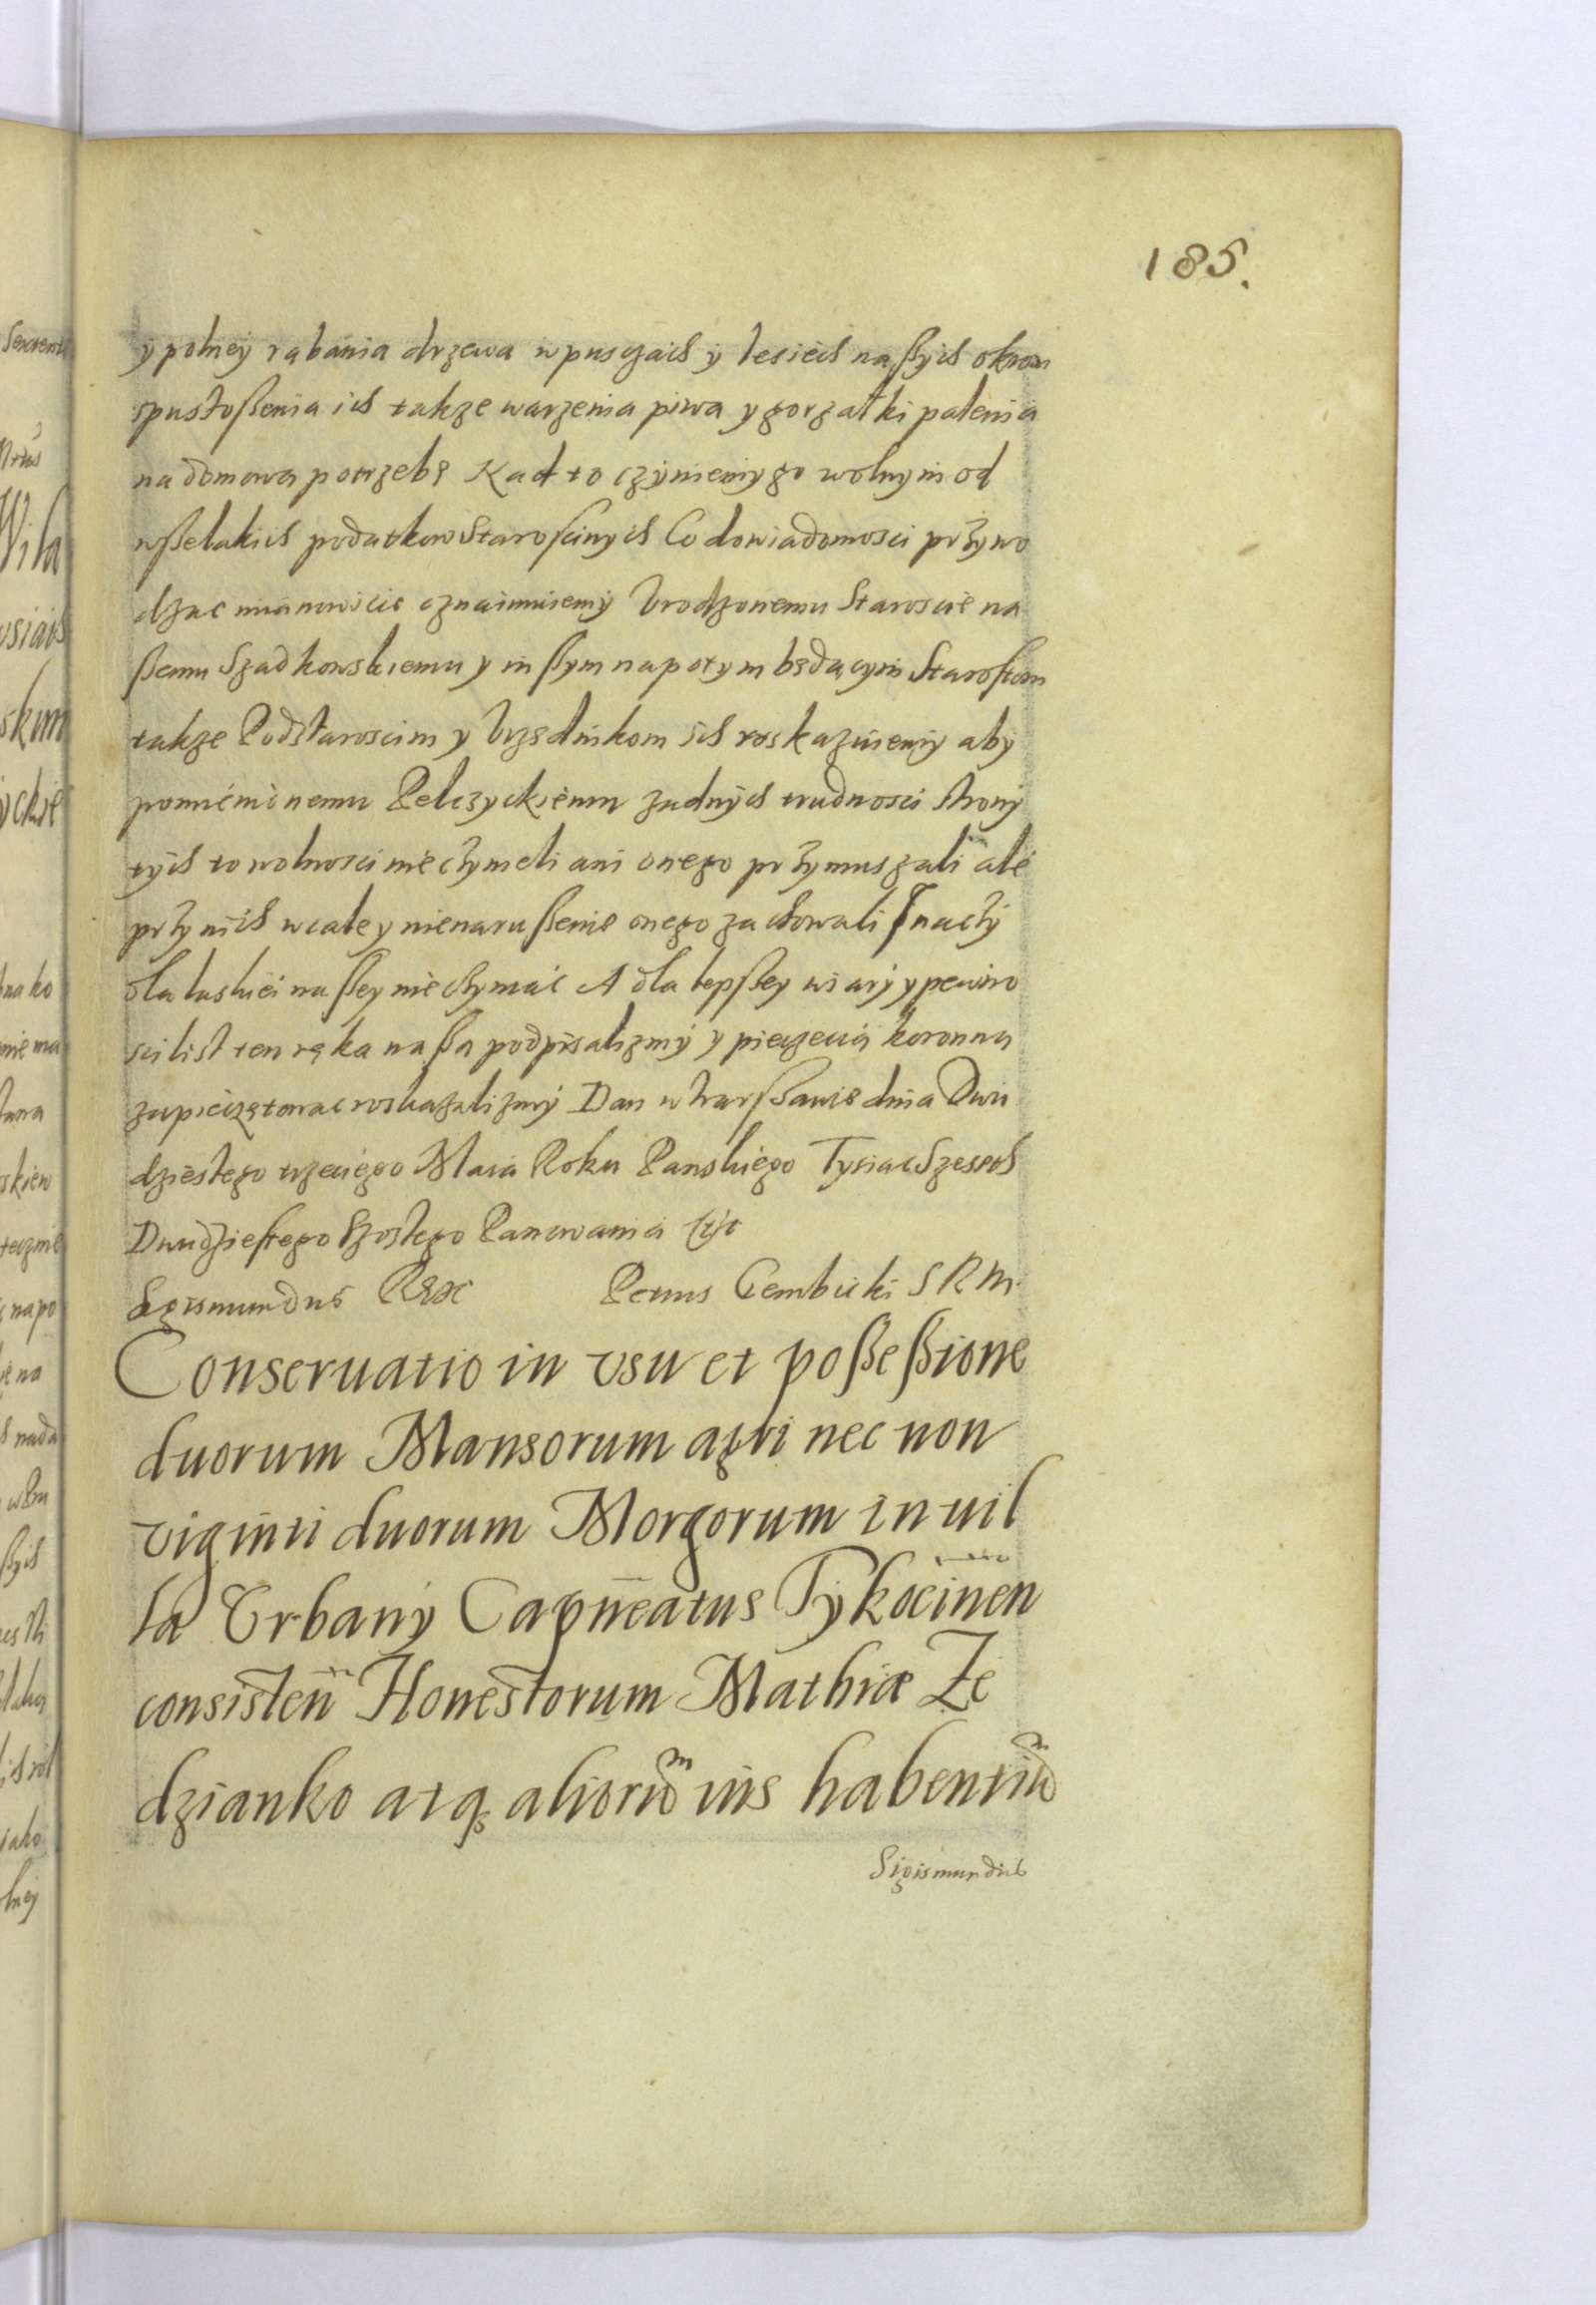 185.
y polney rąbania drzewa w pusczach y lesiech naßych okrom
spustoßenia ich takze warzenia piwa y gorzałki palenia
na domową potrzebę Nad to czyniemy go wolnym od
wßelakich podatkow Staroscinych Co do wiadomosci przywo
dząc mianowicie oznaimuiemy Vrodzonemu Staroscie na
ßemu Szadkowskiemu y inßym napotym będącym Starostom
takze Podstaroscim y Vrzędnikom ich roskazuiemy aby
pomienionemu Pelczyckiemu zadnych trudnosci strony
tych to wolnosci nie czynieli ani onego przymuszali ale
przy nich w cale y nienarußenie onego zachowali Inaczy
dla łaski naßey nie czyniąc A dla lepßey wiary y pewno
sci list ten ręką naßą podpisalizmy y pieczęcią koronną
zapieczętowac roskazalizmy Dan w Warßawie dnia Dwu
dziestego trzeciego Maia Roku Panskiego Tysiac Szescsch
Dwudziestego Szostego Panowania etc
Sigismundus Rex Petrus Gembicki S R M
Conseruatio in vsu et poßeßione
duorum Mansorum agri nec non
viginti duorum Morgorum in uil
la Vrbany Capneatus Tykocinen
consisten Honestorum Mathiæ Ze
dzianko atq aliorũ ius habentiũ
Sigismundus